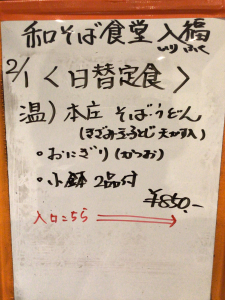 和そば食堂 入福
いり ふく
2/1 〈日替定食〉
温) 本庄 そばうどん
(きざみ玉子とじ 天かす入)
・おにぎり (かつお)
・小鉢 2品付
¥850.-
入口こちら →